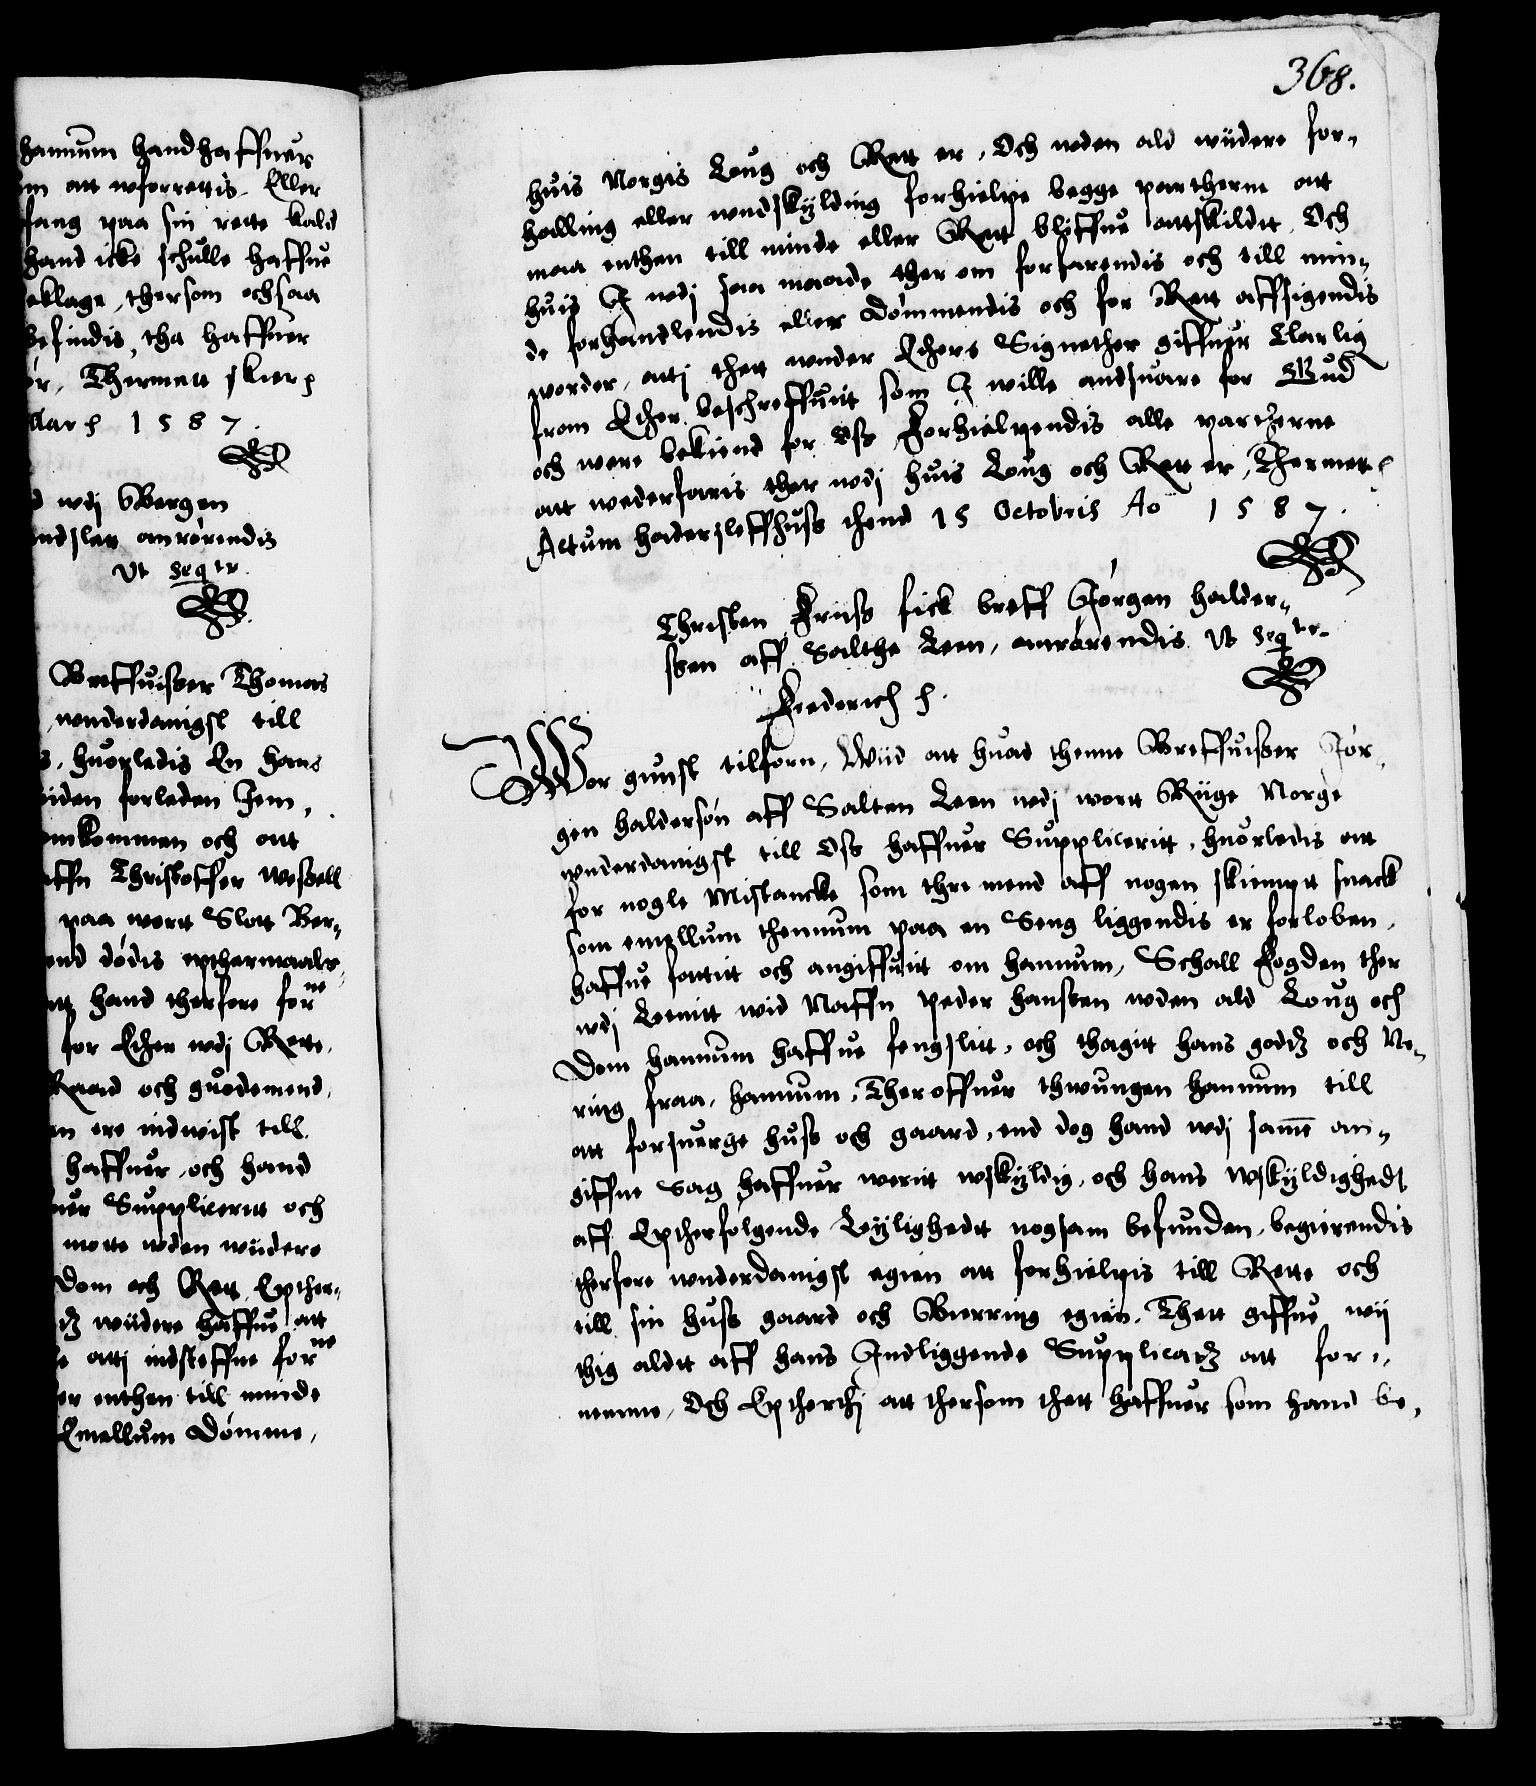 hannum handhaffuer
om att wforrettis. Eller
fang paa sin rette kald
hand icke schulle haffue
eklage, thersom ochsaa
befindis, tha haffuer
ør, Thermett skier
1587.
wdj Bergen
andslag anrørendis
Vt seqtr.
Breffuisser Thomas
wnderdanigst till
s, huorledis En hans
tiden forleden Jem,
omkommen och att
affn Christoffer Wessell
paa wort Slott Ber,
end dødis epthermaale,
att hand therfore forne
for Ether wdj Rette,
Raad och guodemend,
en ere indwist till
haffuer, och hand
uer Suppliceritt och
motte wden widere
Dom och Rett, Epther,
widere haffue att
atj indsteffne forne
er enthen till minde
Emellum Dømme,
368.
huis Norgis Loug och Rett er, Och wden ald widere for,
halling eller wndskylding forhielpe begge partherne att
maa enthen till minde eller Rett bliffue attskildt, Och
huis J wdj saa maade ther om forfarendis och till min,
de forhandlendis eller Dømmendis och for Rett affsigendis
worder, attj thett wnder Ethers Signether giffuer Clarlig
from Ether beschreffuitt som J wille andsuare for Gud
och were bekiend for Oss, Forhielpendis alle partherne
att wederfaris ther wdj huis Loug och Rett er, Thermett
Actum Hadersleffhuss thend 15 Octobris Ao 1587.
Christen Friiss fick breff Jørgen Halder,
ssen aff Salthe Leen, anrørendis Vt seqtr.
Frederich
Wor gunst tilforn, Wiid att huad thenne Breffuisser Jør,
gen Haldersøn aff Salten Leen wdj wort Riige Norge
wnderdanigst till Oss haffuer Suppliceritt, huorledis att
for nogle Mistancke som thre mend aff nogen skiempt snack
som emellum thennum paa en Seng liggendis er forloben,
haffue fattitt och angiffuitt om hannum, Schall Fogden ther
wdj Leenitt wid Naffn Peder Hanssen wden ald Loug och
Dom hannum haffue fengslitt, och thagitt hans godtz och Ne,
ring fraa hannum, Ther offuer thwungen hannum till
att forsuerge huss och gaard, end dog hand wdj samme an,
giffne Sag haffuer weritt wskyldig, och hans Wskyldighedt
aff Eptherfølgende Leylighedt nogsam befunden, begierendis
therfore wnderdanigst egien att forhielpis till Rette och
till sin huss gaard och Bierring egien, Thett giffue wij
thig aldt aff hans Jndliggende Supplicatz att for,,
nemme, Och Eptherthj att thersom thett haffuer som hand be,